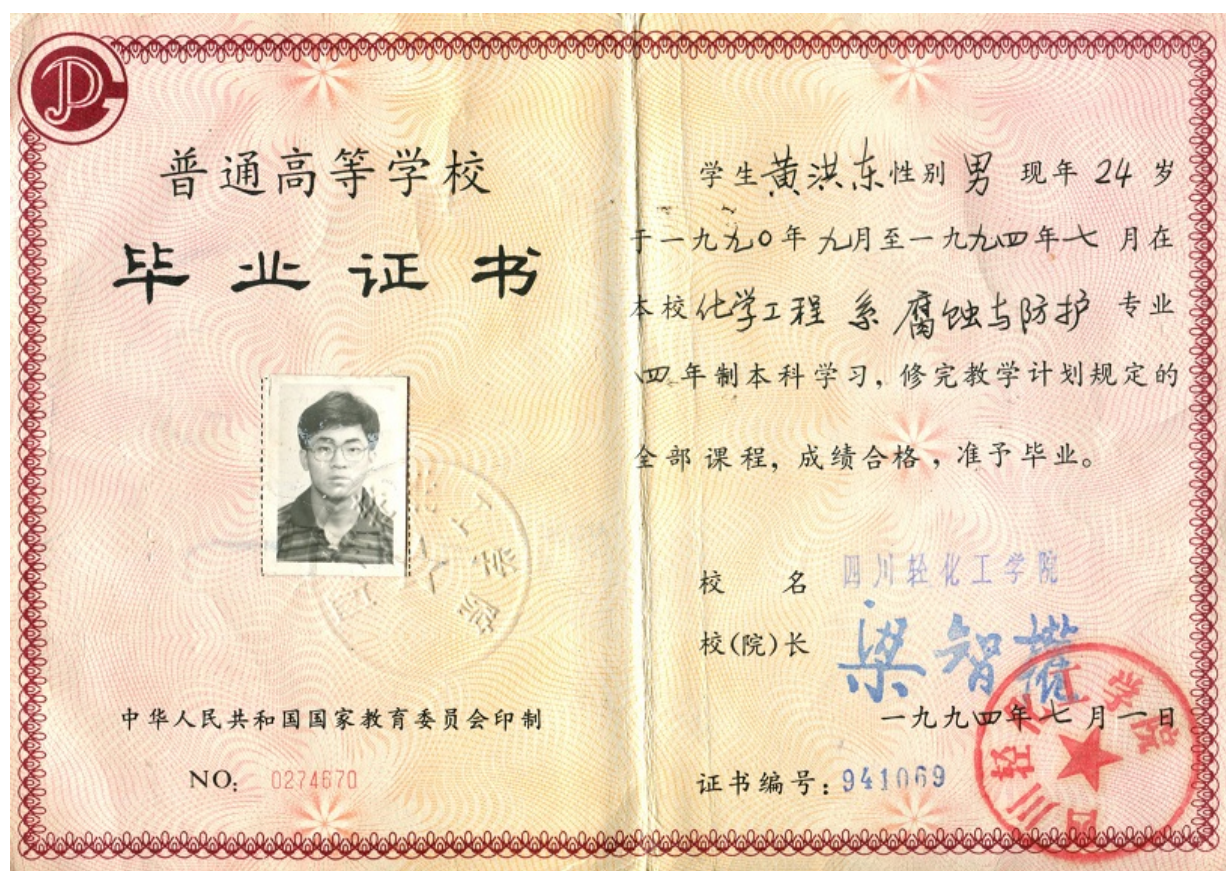 普通高等学校
毕业证书
中华人民共和国国家教育委员会印制
NO: 0274670
学生黄洪东性别 男 现年 24 岁
于一九九0年 九月至一九九四年七 月在
本校化学工程 系 腐蚀与防护 专业
四年制本科学习,修完教学计划规定的
全部课程,成绩合格,准予毕业。
校 名 四川轻化工学院
校(院)长 梁智权
一九九四年七月一日
证书编号:941069
四川轻化工学院